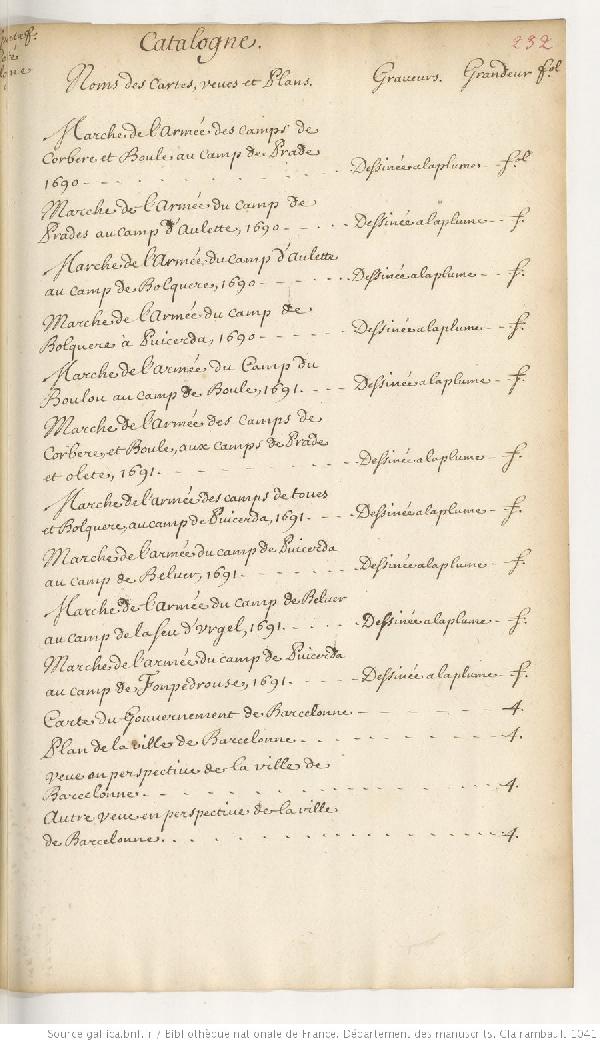 Catalogne.
232
Noms des Cartes, veues et Plans. Graveurs. Grandeur fol
Marche de l'Armée des camps de
Corbere et Boule au camp de Prade
1690 - Dessinée a la plume - fol
Marche de l'Armée du camp de
Prades au camp d'Aulette, 1690 - Dessinée a la plume - f.
Marche de l'Armée du camp d'Aulette
au camp de Bolquere, 1690 - Dessinée a la plume - f.
Marche de l'Armée du camp de
Bolquere à Puicerda, 1690 - Dessinée a la plume - f.
Marche de l'armée du Camp du
Boulou au camp de Boule, 1691. - Dessinée a la plume - f.
Marche de l'armée des camps de
Corbere, et Boule, aux camps de Prade
et olete, 1691. - Dessinée a la plume - f.
Marche de l'armée des camps de toues
et Bolquere, au camp de Puicerda, 1691. - Dessinée a la plume - f.
Marche de l'armée du camp de Puicerda
au camp de Beluer, 1691. - Dessinée a la plume - f.
Marche de l'armée du camp de Beluer
au camp de la seu d'Vrgel, 1691. - Dessinée a la plume - f.
Marche de l'armée du camp de Puicerda
au camp de Fonpedrouse, 1691. - Dessinée a la plume - f.
Carte du Gouvernement de Barcelonne - 4.
Plan de la ville de Barcelonne - 4.
veue en perspective de la ville de
Barcelonne. - 4.
Autre veue en perspective de la ville
de Barcelonne. - 4.
Source gallica.bnf.fr / Bibliothèque nationale de France. Département des manuscrits. Clairambault 1041